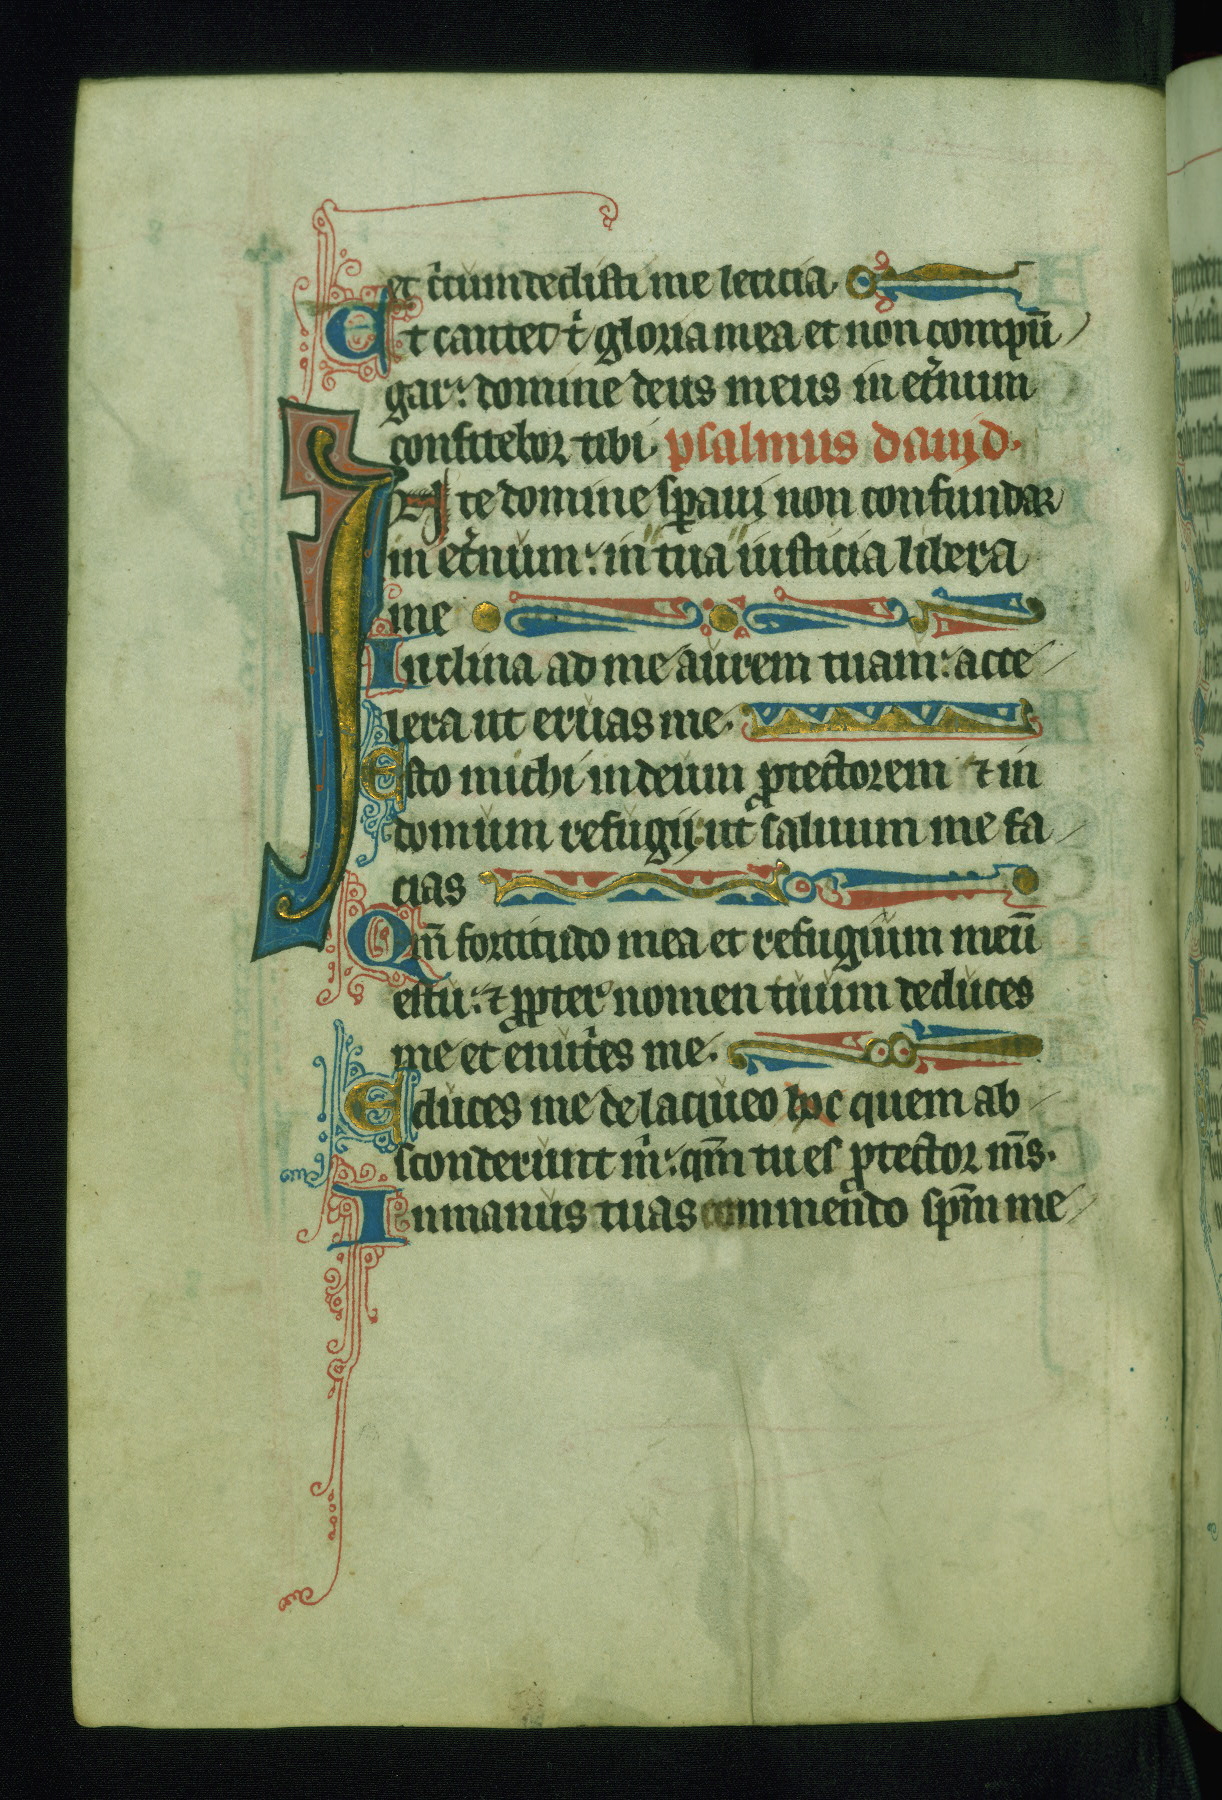 et c̾cumdedisti me leticia.
Et cantet t̾ gloria mea et non compū
gar: domine deus meus in et̾num
confitebor tibi. psalmus dauid.
IN te domine sꝑaui non confundar
in et̾num: in tua iusticia libera
me
Inclina ad me aurem tuam: acce
lera ut eruas me.
Esto michi in deum ꝓtectorem ⁊ in
domum refugij: ut saluum me fa
cias
Qm̄ fortitudo mea et refugium meū
es tu: ⁊ ꝓpter nomen tuum deduces
me et enut̾es me.
Educes me de laqueo hoc quem ab
sconderunt m̾: qm̄ tu es ꝓtector m̄s.
In manus tuas commendo spm̄ me